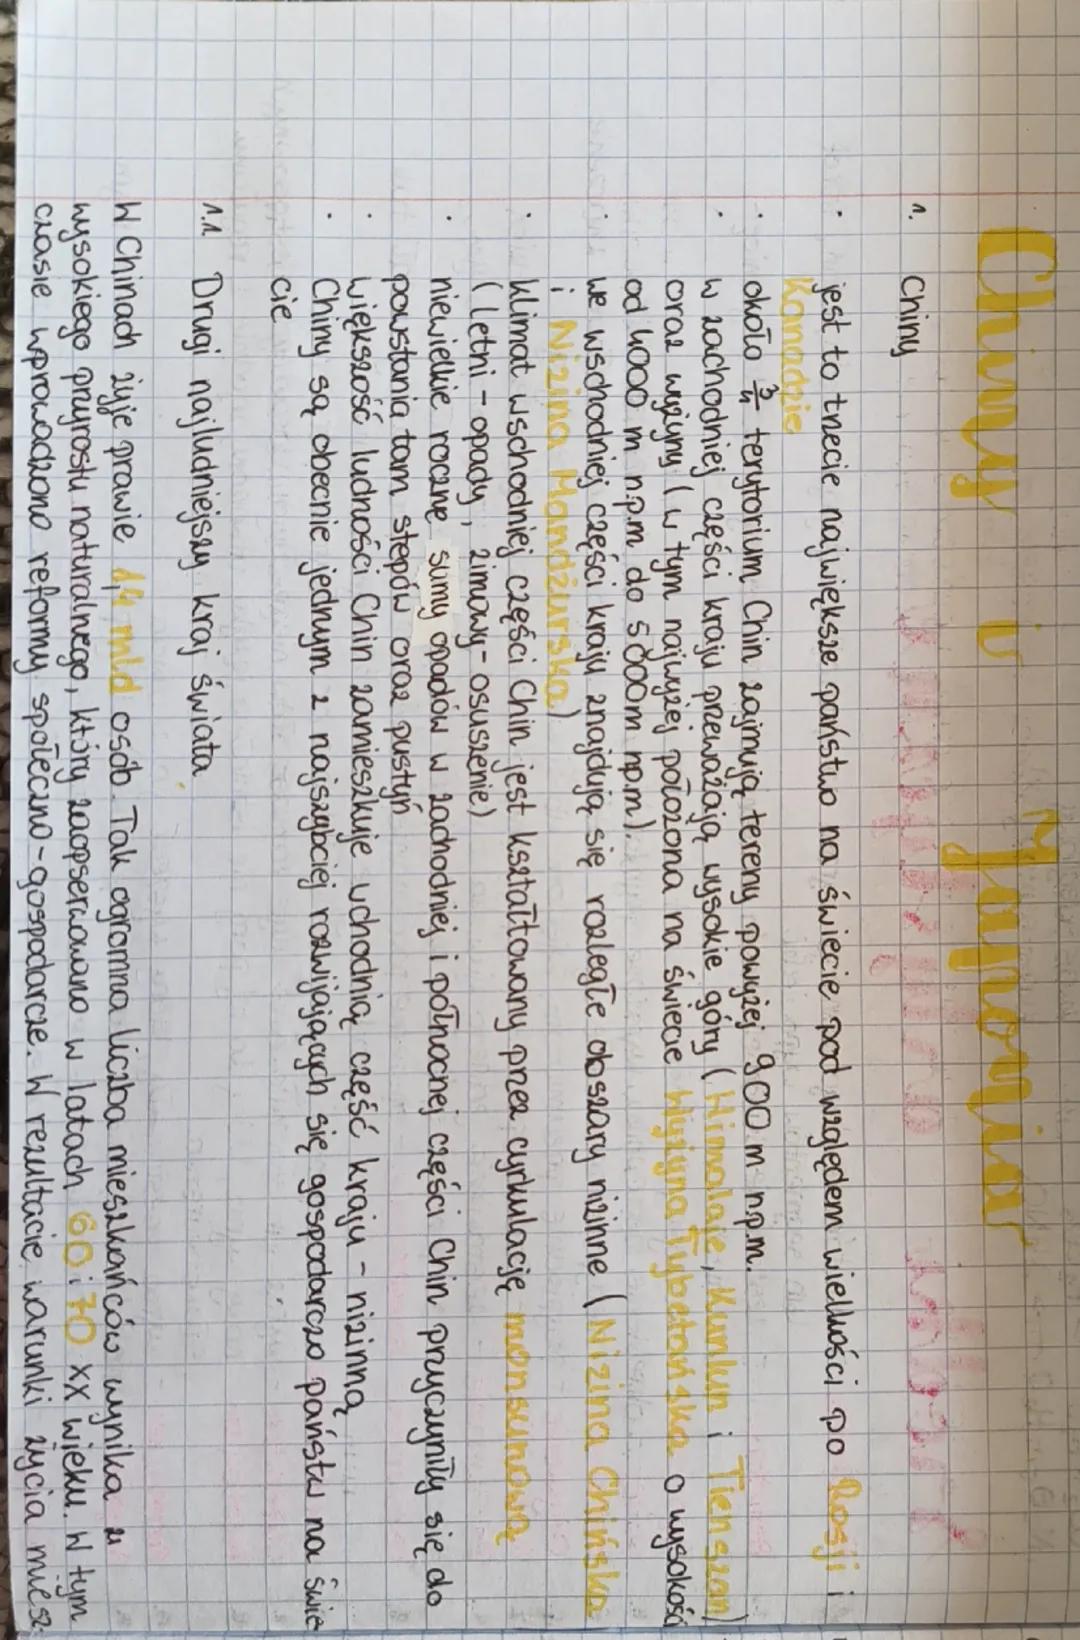 Chiny i Japonia
1. Chiny
• jest to trzecie największe państwo na świecie pod względem wielkości po Rosji i
Kanadzie
• około 3/4 terytorium Chin zajmują tereny powyżej 900 m n.p.m.
• w zachodniej części kraju przeważają wysokie góry (Himalaje, Kunlun i Tienszan)
oraz wyżyny (w tym najwyżej położona na świecie Wyżyna Tybetańska o wysokości
od 4000 m n.p.m do 5000m npm).
• we wschodniej części kraju znajdują się rozległe obszary nizinne (Nizina Chińska
i Nizina Mandżurska)
• klimat wschodniej części Chin jest kształtowany przez cyrkulację monsunową
(letni - opady, zimowy - osuszenie)
• niewielkie roczne sumy opadów w zachodniej i północnej części Chin przyczyniły się do
powstania tam stepów oraz pustyń
• większość ludności Chin zamieszkuje wchodnią część kraju - nizinną
• Chiny są obecnie jednym z najszybciej rozwijających się gospodarczo państw na świe-
cie
1.1 Drugi najludniejszy kraj świata
W Chinach żyje prawie 1,4 mld osób. Tak ogromna liczba mieszkańców wynika z
wysokiego przyrostu naturalnego, który zaopserwowano w latach 60 i 70 XX wieku. W tym
czasie wprowadzono reformy społeczno-gospodarcze. W rezultacie warunki życia miesz-